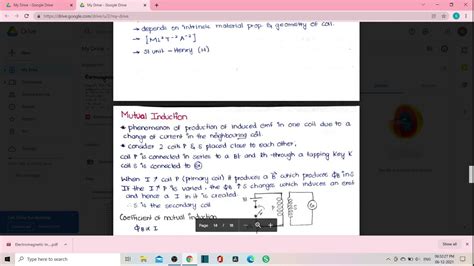 My Drive - Google Drive
My Drive - Google Drive
https://drive.google.com/drive/u/2/my-drive
Drive
→ depends on intrinsic material prop & geometry of coil.
→ [ML²T⁻²A⁻²]
→ SI unit - Henry (H)
Mutual Induction
* phenomenon of production of induced emf in one coil due to a
change of current in the neighbouring coil.
* consider 2 coils P & S placed close to each other,
coil P is connected in series to a Bt and Rh through a tapping key K
coil S is connected to G
When I ↑ coil P (primary coil) it produces a B which produces ϕB in S
If the I ↑ P is varied, the ϕB ↑ S changes which induces an emf
and hence a I in it is created.
∴ S is the secondary coil
Coefficient of mutual induction
ϕB ∝ I
Page 14 / 18
Electromagnetic In....pdf
Show all
Type here to search
ENG